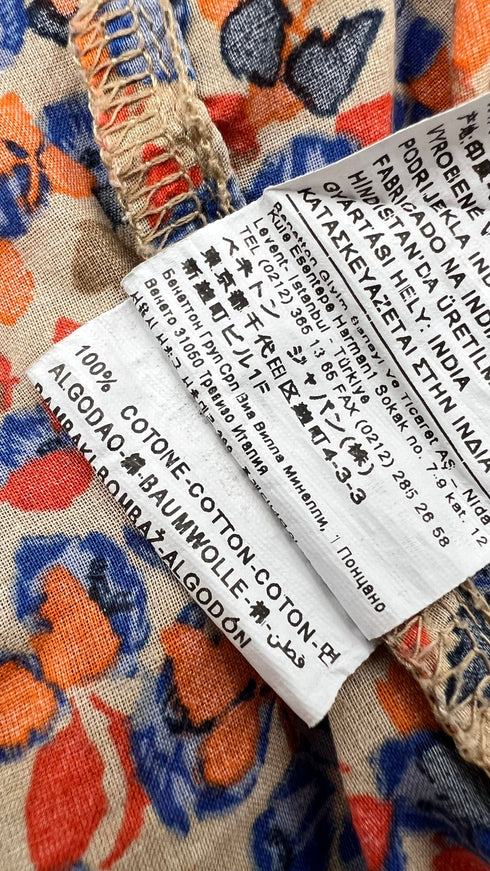 100% COTONE-COTTON-COTON-면
ALGODAO-棉-BAUMWOLLE-棉-قطن
BAMBAKI-BOUBAZ-ALGODÓN
Бенеттон Груп Срл Виа Вилла Минелли, 1 Понцано
Венето 31050 Тревизо Италия
ベネトン ジャパン(株)
東京都千代田区麹町4-3-3
新麹町ビル1F
Benetton Giyim Sanayi ve Ticaret AŞ - Nida
Kule Esentepe Harmani Sokak no. 7-9 kat. 12
Levent- Istanbul - Türkiye
TEL (0212) 365 13 65 FAX (0212) 285 26 58
VYROBENE V
PODRIJEKLA INDI
FABRICADO NA INDI
HINDISTAN'DA ÜRETILM
GYÁRTÁSI HELY: INDIA
ΚΑΤΑΣΚΕΥΑΖΕΤΑΙ ΣΤΗΝ ΙΝΔΙΑ